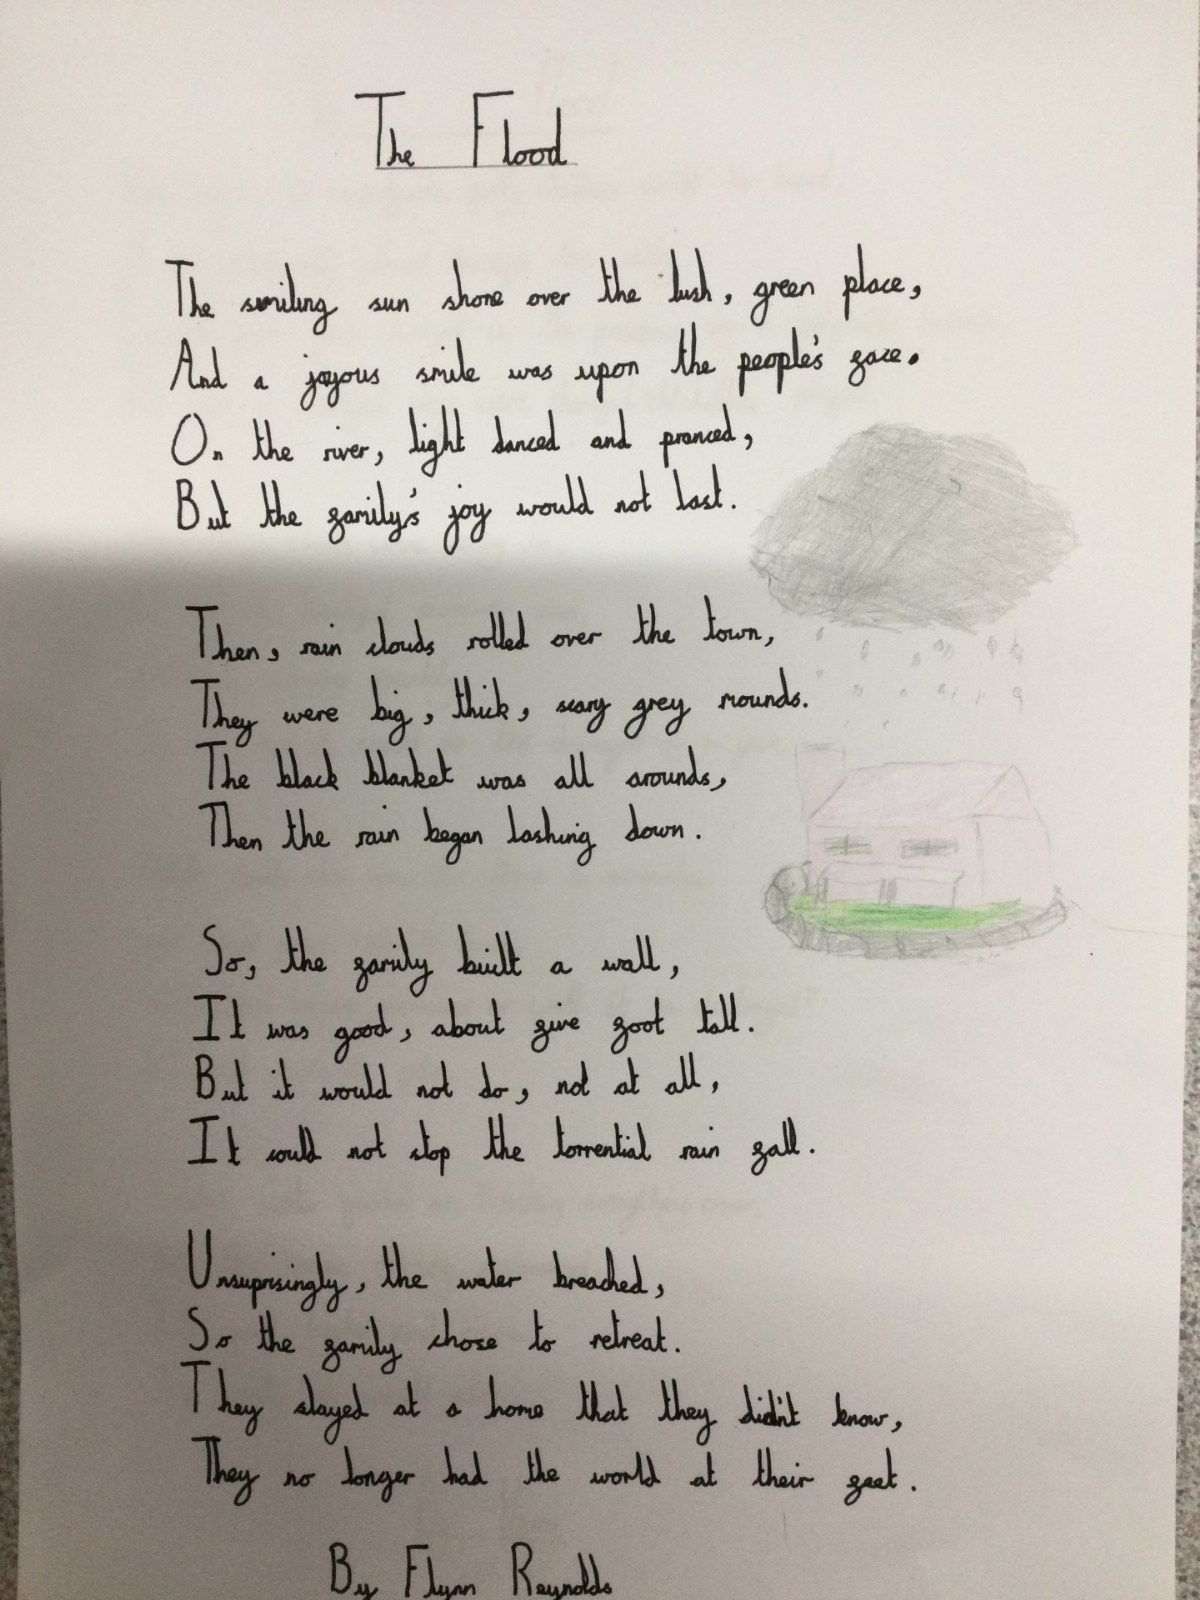 The Flood
The smiling sun shone over the lush, green place,
And a joyous smile was upon the people's face.
On the river, light danced and pranced,
But the family's joy would not last.
Then, rain clouds rolled over the town,
They were big, thick, scary grey mounds.
The black blanket was all arounds,
Then the rain began lashing down.
So, the family built a wall,
It was good, about five foot tall.
But it would not do, not at all,
It could not stop the torrential rain fall.
Unsuprisingly, the water breached,
So the family chose to retreat.
They stayed at a home that they didn't know,
They no longer had the world at their feet.
By Flynn Reynolds